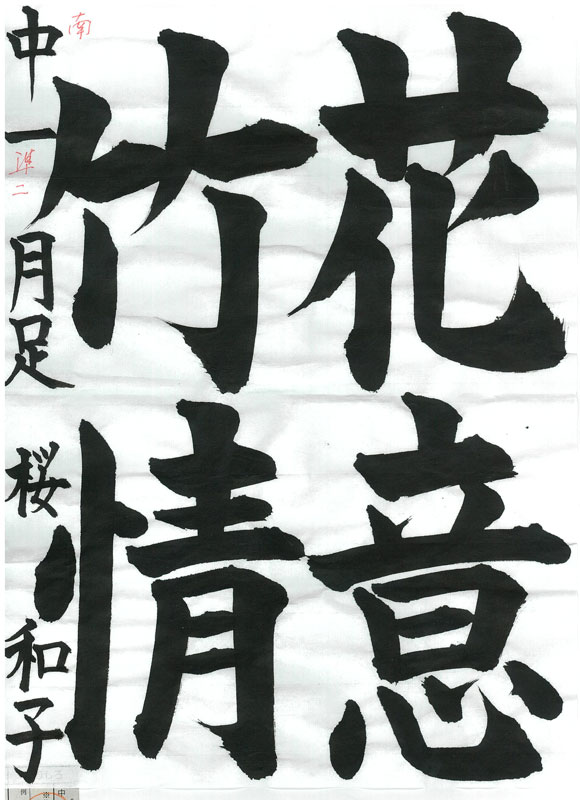 花意
竹情
中一 月足 桜和子
南
準二